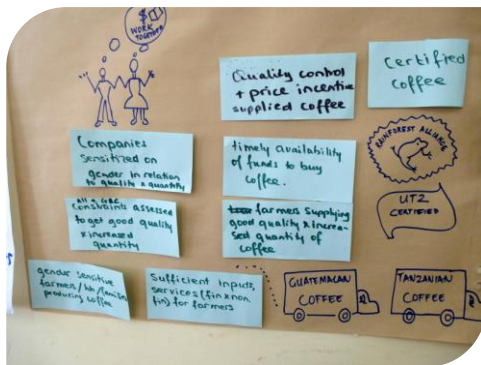 $
WORK
TOGETHER
Quality control
+ price incentive
supplied coffee
Certified
coffee
Companies
sensitized on
gender in relation
to quality & quantity
timely availability
of funds to buy
coffee.
RAINFOREST ALLIANCE
UTZ
CERTIFIED
constraints assessed
to get good quality
& increased
quantity
farmers supplying
good quality & increa-
sed quantity of
coffee
gender sensitive
farmers/hh/families
producing coffee
Sufficient inputs,
services (fin & non
fin) for farmers
GUATEMALAN
COFFEE
TANZANIAN
COFFEE